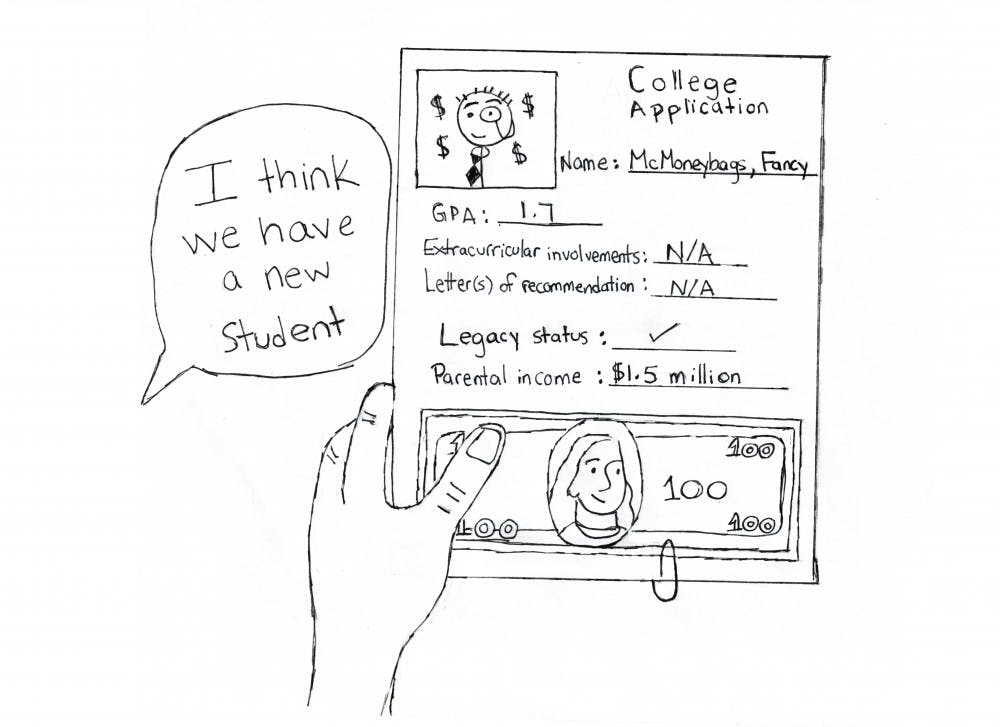 I think
we have
a new
student
College
Application
$ $
$ $
Name: McMoneybags, Fancy
GPA: 1.7
Extracurricular involvements: N/A
Letter(s) of recommendation: N/A
Legacy status: ✓
Parental income: $1.5 million
100
100
100
100